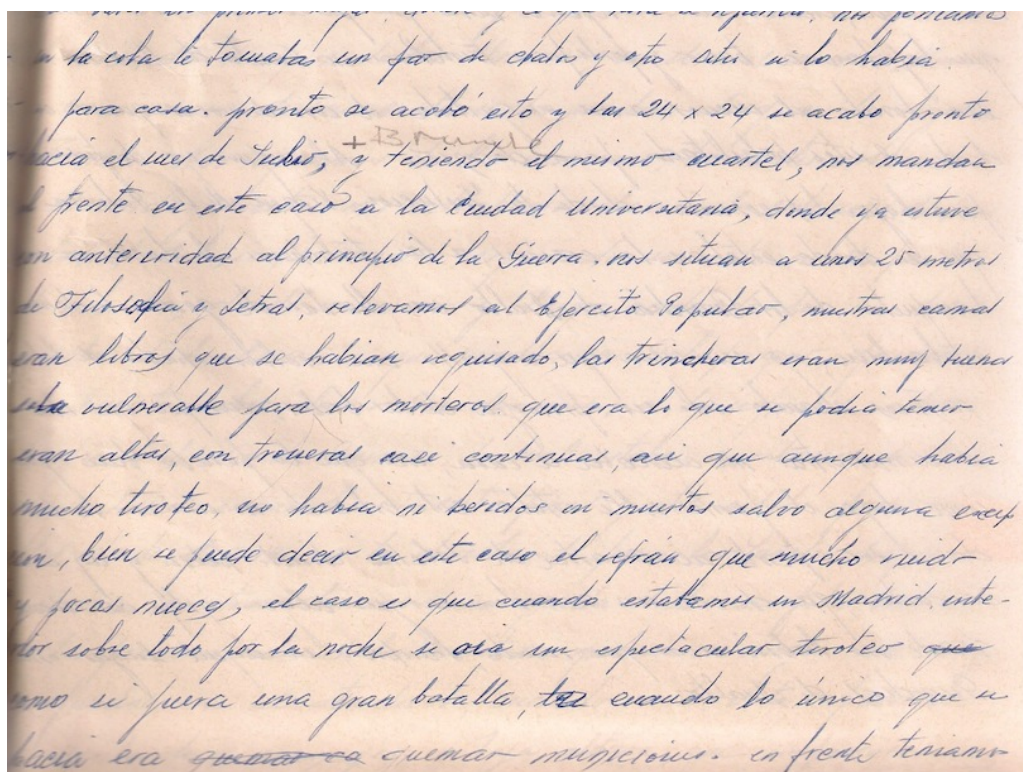 la cola te tomabas un par de chatos y otro sitio si lo había
para casa. pronto se acabó esto y las 24 x 24 se acabo pronto
+ Brunete
hacia el mes de Julio, y teniendo el mismo cuartel, nos mandan
frente en este caso a la Ciudad Universitaria, donde ya estuve
con anterioridad al principio de la Guerra. nos situan a unos 25 metros
de Filosofia y Letras, relevamos al Ejercito Popular, nuestras camas
eran libros que se habian requisado, las trincheras eran muy buenas
solo vulnerable para los morteros que era lo que se podia temer
eran altas, con troneras casi continuas asi que aunque habia
mucho tiroteo, no habia ni heridos ni muertos salvo alguna excep
ión, bién se puede decir en este caso el refrán que mucho ruido
y pocas nueces, el caso es que cuando estabamos en Madrid inte-
rior sobre todo por la noche se oia un espectacular tiroteo que
como si fuera una gran batalla, cuando lo único que se
hacia era quemar municiones. en frente teniamo